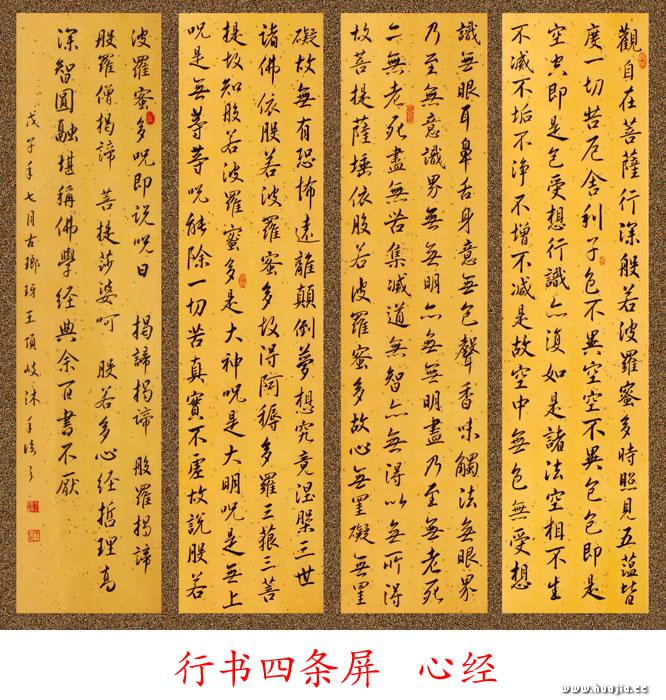 觀自在菩薩行深般若波羅蜜多時照見五蘊皆
度一切苦厄舍利子色不異空空不異色色即是
空空即是色受想行識亦復如是諸法空相不生
不滅不垢不净不增不减是故空中無色無受想
識無眼耳鼻舌身意無色聲香味觸法無眼界
乃至無意識界無無明亦無無明盡乃至無老死
亦無老死盡無苦集滅道無智亦無得以無所得
故菩提薩埵依般若波羅蜜多故心無罣礙無罣
礙故無有恐怖遠離顛倒夢想究竟涅槃三世
諸佛依般若波羅蜜多故得阿耨多羅三藐三菩
提故知般若波羅蜜多是大神呪是大明呪是無上
呪是無等等呪能除一切苦真實不虛故說般若
波羅蜜多呪即說呪曰 揭諦揭諦 般羅揭諦
般羅僧揭諦 菩提莎婆呵 般若多心經哲理高
深智圓融堪稱佛學經典余百書不厭
戊子年七月古瑯琊王頂岐沐手
行书四条屏 心经
www.huajia.cc